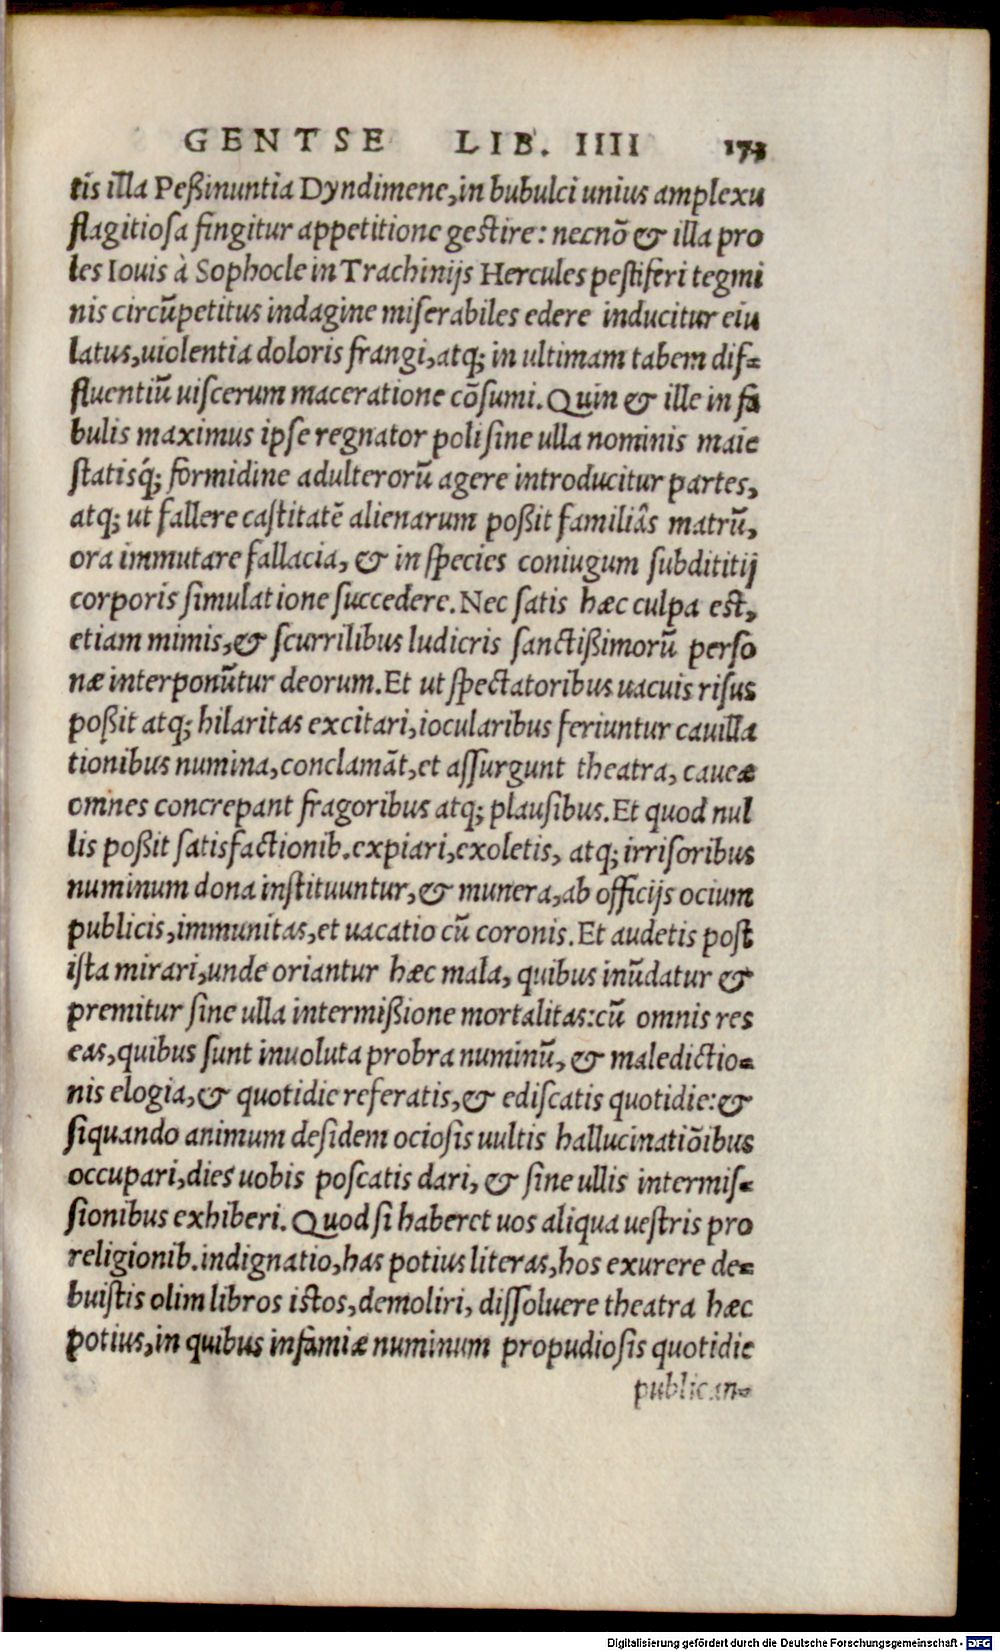 GENTSE LIB. IIII 173
tis illa Peßinuntia Dyndimene,in bubulci unius amplexu
flagitiosa fingitur appetitione gestire: necnõ & illa pro
les Iouis à Sophocle in Trachinijs Hercules pestiferi tegmi
nis circũpetitus indagine miserabiles edere inducitur eiu
latus,uiolentia doloris frangi,atq; in ultimam tabem dif-
fluentiũ uiscerum maceratione cõsumi.Quin & ille in fa
bulis maximus ipse regnator poli sine ulla nominis maie
statisq́; formidine adulterorũ agere introducitur partes,
atq; ut fallere castitatẽ alienarum poßit familiâs matrũ,
ora immutare fallacia, & in species coniugum subdititij
corporis simulatione succedere.Nec satis hæc culpa est,
etiam mimis,& scurrilibus ludicris sanctißimorũ perso
næ interponũtur deorum.Et ut spectatoribus uacuis risus
poßit atq; hilaritas excitari,iocularibus feriuntur cauilla
tionibus numina,conclamãt,et assurgunt theatra, caueæ
omnes concrepant fragoribus atq; plausibus.Et quod nul
lis poßit satisfactionib.expiari,exoletis, atq; irrisoribus
numinum dona instituuntur,& munera,ab officijs ocium
publicis,immunitas,et uacatio cũ coronis.Et audetis post
ista mirari,unde oriantur hæc mala, quibus inũdatur &
premitur sine ulla intermißione mortalitas:cũ omnis res
eas,quibus sunt inuoluta probra numinũ, & maledictio-
nis elogia,& quotidie referatis,& ediscatis quotidie:&
siquando animum desidem ociosis uultis hallucinatiõibus
occupari,dies uobis poscatis dari, & sine ullis intermis-
sionibus exhiberi. Quod si haberet uos aliqua uestris pro
religionib.indignatio,has potius literas,hos exurere de-
buistis olim libros istos,demoliri, dissoluere theatra hæc
potius,in quibus infamiæ numinum propudiosis quotidie
publican-
Digitalisierung gefördert durch die Deutsche Forschungsgemeinschaft - DFG